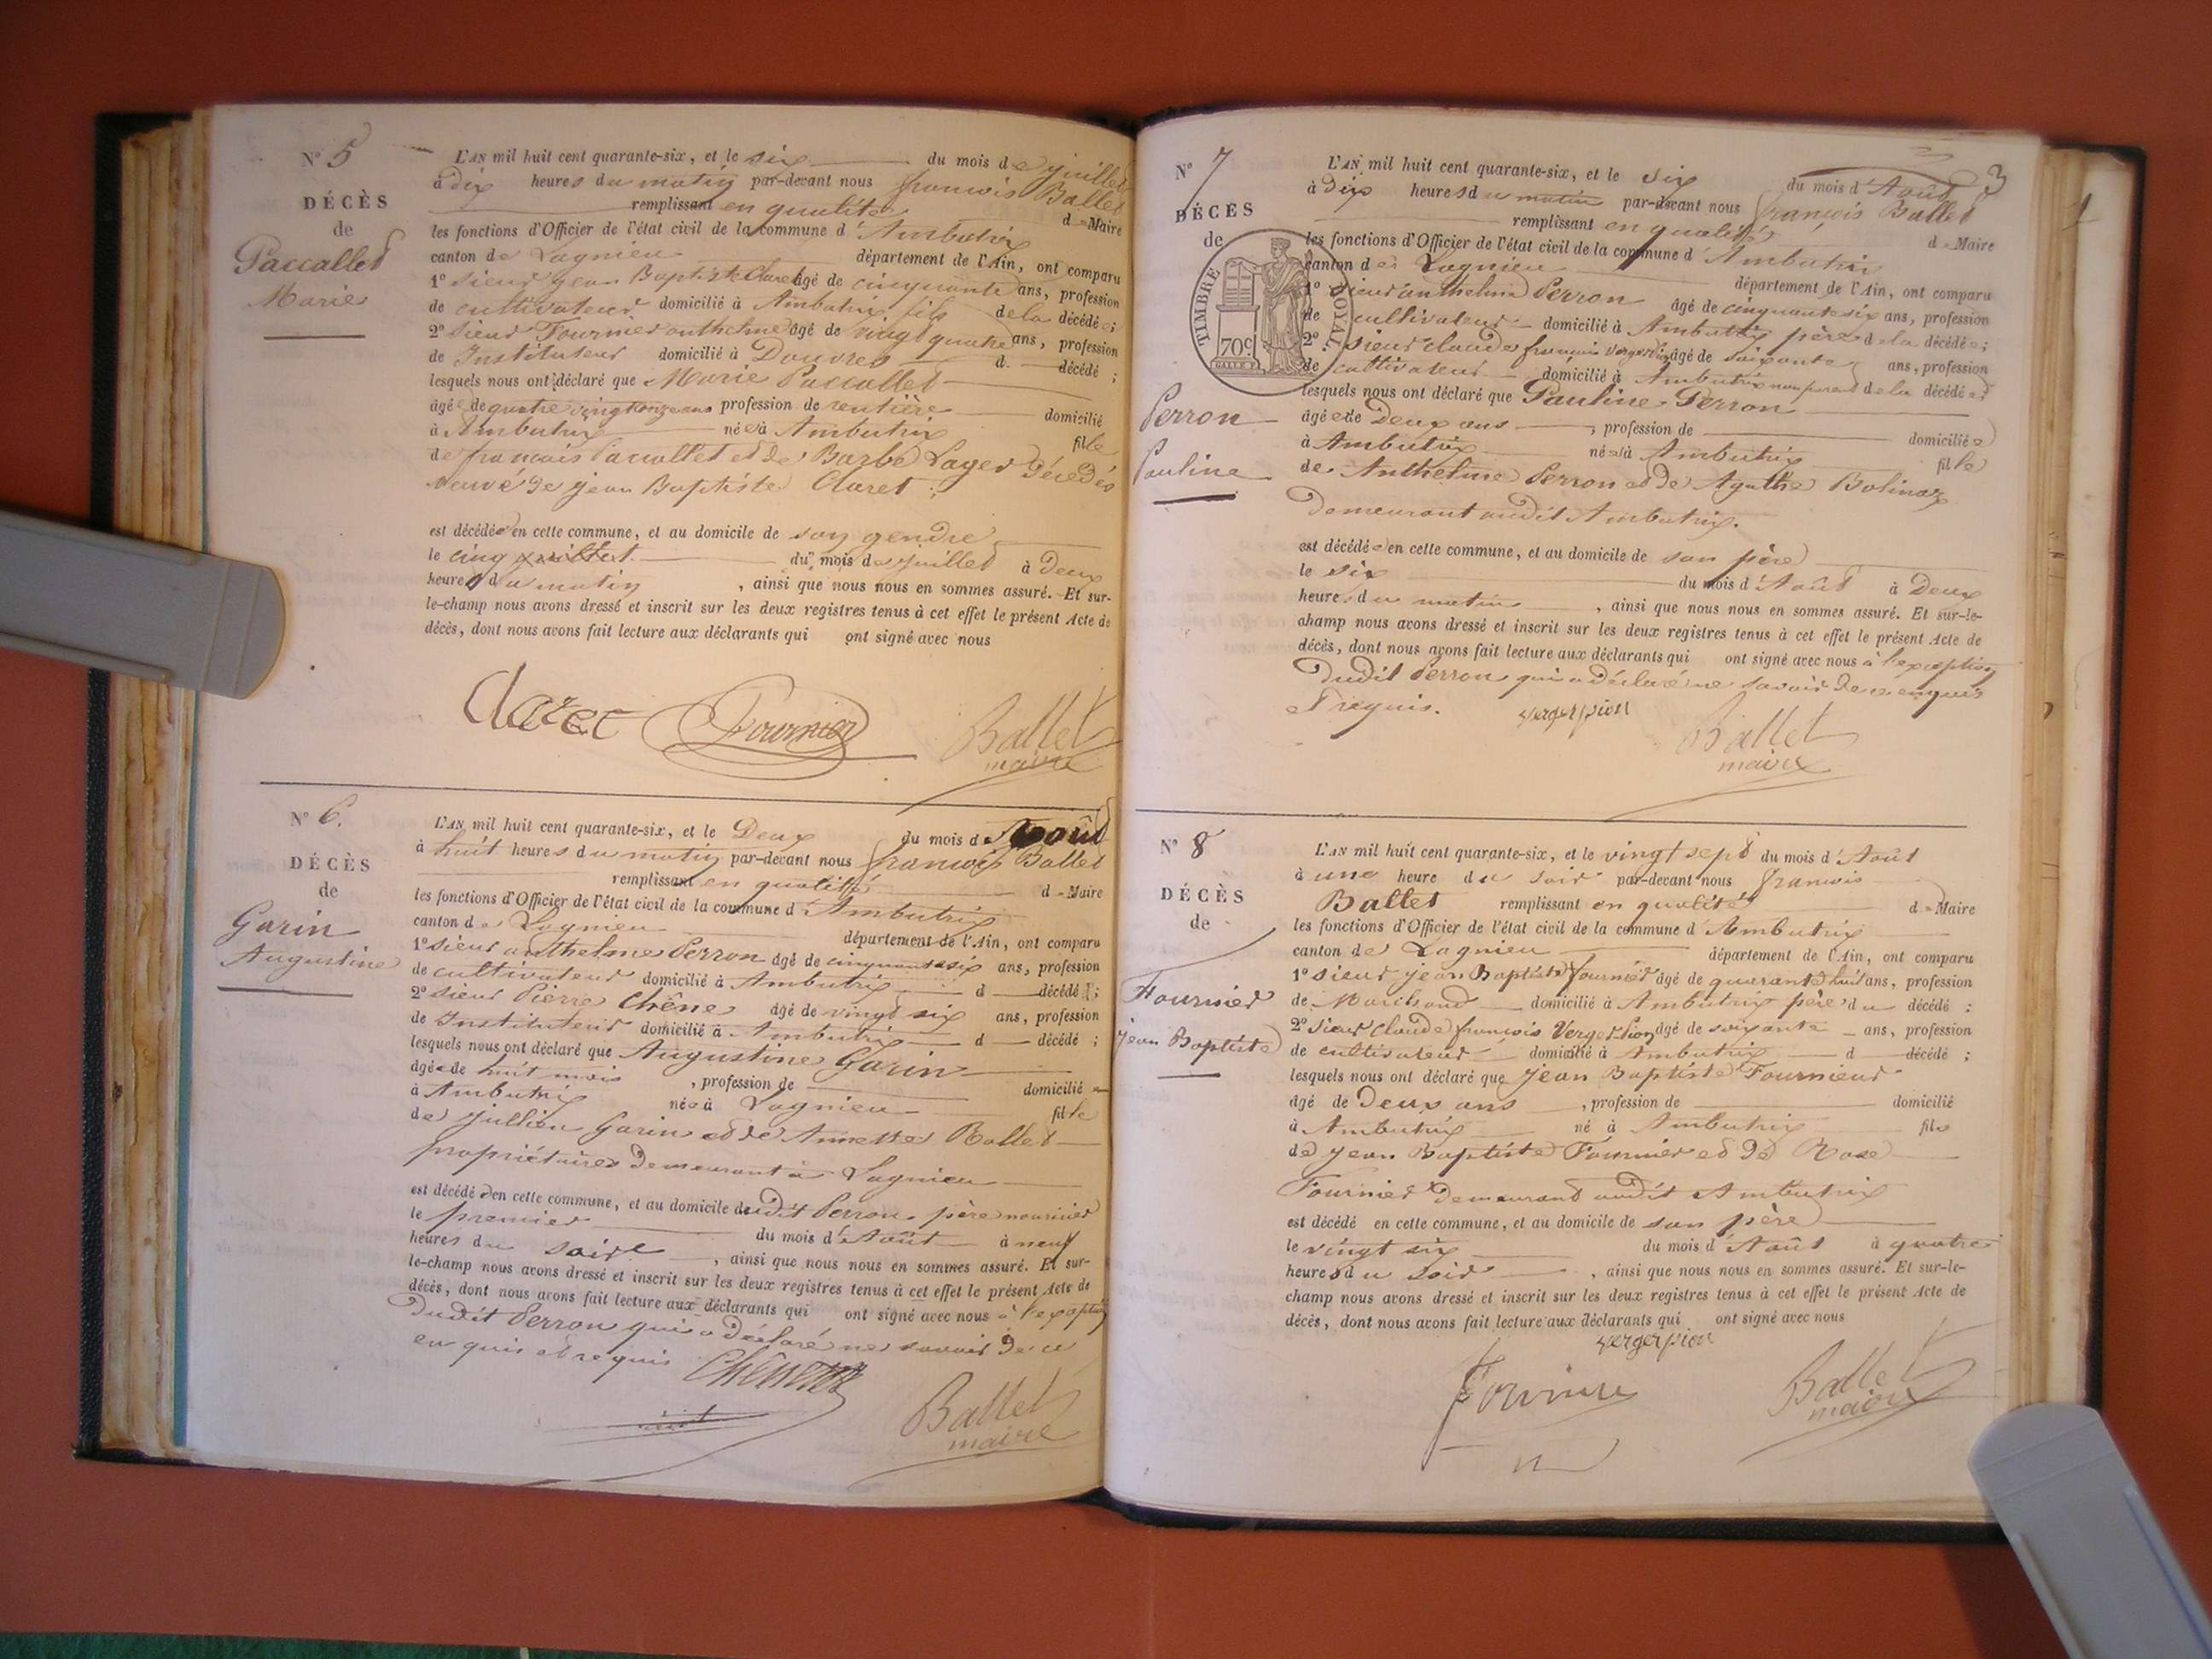 N° 5
DÉCÈS
de
Paccallet
Marie
L'AN mil huit cent quarante-six, et le six du mois de juillet
à dix heures du matin par-devant nous francois Ballet
remplissant en qualité d = Maire
les fonctions d'Officier de l'état civil de la commune d'Ambutrix
canton de Lagnieu département de l'Ain, ont comparu
1° sieur jean Baptiste Claret âgé de cinquante ans, profession
de cultivateur domicilié à Ambutrix fils de la décédée ;
2° sieur Fournier anthelme âgé de vingt quatre ans, profession
de Instituteur domicilié à Douvres d décédé ;
lesquels nous ont déclaré que Marie Paccallet
âgée de quatre vingt onze ans profession de rentière domicilié
à Ambutrix née à Ambutrix fille
de francois Paccallet et de Barbe Lager Décédés
veuve de jean Baptiste Claret
est décédée en cette commune, et au domicile de son gendre
le cinq juillet du mois de juillet à Deux
heures du matin , ainsi que nous nous en sommes assuré. Et sur-
le-champ nous avons dressé et inscrit sur les deux registres tenus à cet effet le présent Acte de
décès, dont nous avons fait lecture aux déclarants qui ont signé avec nous
Claret Fournier Ballet
maire
N° 6.
DÉCÈS
de
Garin
Augustine
L'AN mil huit cent quarante-six, et le Deux du mois de Août
à huit heures du matin par-devant nous francois Ballet
remplissant en qualité d = Maire
les fonctions d'Officier de l'état civil de la commune d'Ambutrix
canton de Lagnieu département de l'Ain, ont comparu
1° sieur anthelme Perron âgé de cinquante six ans, profession
de cultivateur domicilié à Ambutrix d décédé ;
2° sieur Pierre Chêne âgé de vingt six ans, profession
de Instituteur domicilié à Ambutrix d décédé ;
lesquels nous ont déclaré que Augustine Garin
âgée de huit mois , profession de domicilié
à Ambutrix née à Lagnieu fille
de jullien Garin et de Annette Ballet
propriétaires demeurant à Lagnieu
est décédée en cette commune, et au domicile dudit Perron père nourricier
le premier du mois d'Août à neuf
heures du soir , ainsi que nous nous en sommes assuré. Et sur-
le-champ nous avons dressé et inscrit sur les deux registres tenus à cet effet le présent Acte de
décès, dont nous avons fait lecture aux déclarants qui ont signé avec nous à l'exeption
Dudit Perron qui a Déclaré ne savoir De ce
enquis et requis
Ballet
maire
3
N° 7
DÉCÈS
de
TIMBRE ROYAL.
70c
Perron
Pauline
L'AN mil huit cent quarante-six, et le six du mois d'Août
à dix heures du matin par-devant nous francois Ballet
remplissant en qualité d = Maire
les fonctions d'Officier de l'état civil de la commune d'Ambutrix
canton de Lagnieu département de l'Ain, ont comparu
1° sieur anthelme Perron âgé de cinquante six ans, profession
de cultivateur domicilié à Ambutrix père de la décédée ;
2° sieur claude francois Vergerpion âgé de soixante ans, profession
de cultivateur domicilié à Ambutrix non parent de la décédée ;
lesquels nous ont déclaré que Pauline Perron
âgée de Deux ans , profession de domiciliée
à Ambutrix née à Ambutrix fille
de Anthelme Perron et de Agathe Bolinoz
Demeurant audit Ambutrix.
est décédée en cette commune, et au domicile de son père
le six du mois d'Août à Deux
heures du matin , ainsi que nous nous en sommes assuré. Et sur-le-
champ nous avons dressé et inscrit sur les deux registres tenus à cet effet le présent Acte de
décès, dont nous avons fait lecture aux déclarants qui ont signé avec nous à l'exeption
Dudit Perron qui a Déclaré ne savoir De ce enquis
et requis. vergerpion Ballet
maire
N° 8
DÉCÈS
de
Fournier
jean Baptiste
L'AN mil huit cent quarante-six, et le vingt sept du mois d'Août
à une heure du soir par-devant nous francois
Ballet remplissant en qualité d = Maire
les fonctions d'Officier de l'état civil de la commune d'Ambutrix
canton de Lagnieu département de l'Ain, ont comparu
1° sieur jean Baptiste fournier âgé de quarante huit ans, profession
de Marchand domicilié à Ambutrix père du décédé :
2° sieur Claude francois Verger Pion âgé de soixante ans, profession
de cultivateur domicilié à Ambutrix d décédé ;
lesquels nous ont déclaré que jean Baptiste Fournieur
âgé de Deux ans , profession de domicilié
à Ambutrix né à Ambutrix fils
de jean Baptiste Fournier et de Rose
Fournier Demeurant audit Ambutrix
est décédé en cette commune, et au domicile de son père
le vingt six du mois d'Août à quatre
heures du soir , ainsi que nous nous en sommes assuré. Et sur-le-
champ nous avons dressé et inscrit sur les deux registres tenus à cet effet le présent Acte de
décès, dont nous avons fait lecture aux déclarants qui ont signé avec nous
vergerpion
Ballet
maire